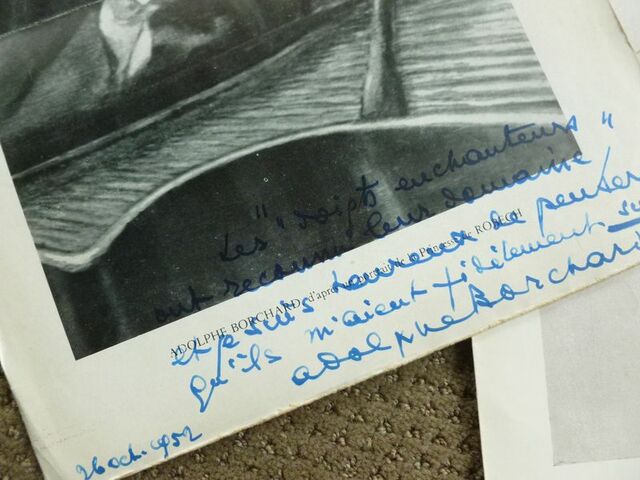 Les "doigts enchanteurs"
ont reconnu leur domaine/
et je suis heureux de penser
qu'ils m'aient fidèlement
Adolphe Borchard
ADOLPHE BORCHARD, d'après un portrait de la Princesse de ROBECH
26 oct. 1952